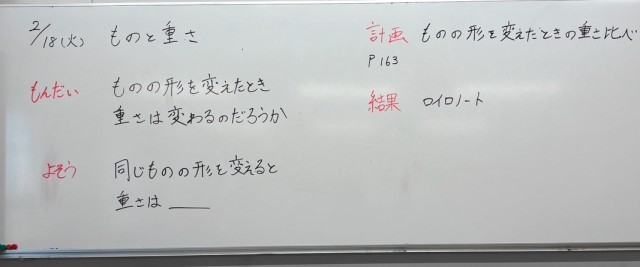 2/18(火) ものと重さ
もんだい ものの形を変えたとき
重さは変わるのだろうか
よそう 同じものの形を変えると
重さは
計画 ものの形を変えたときの重さ比べ
P163
結果 ロイロノート